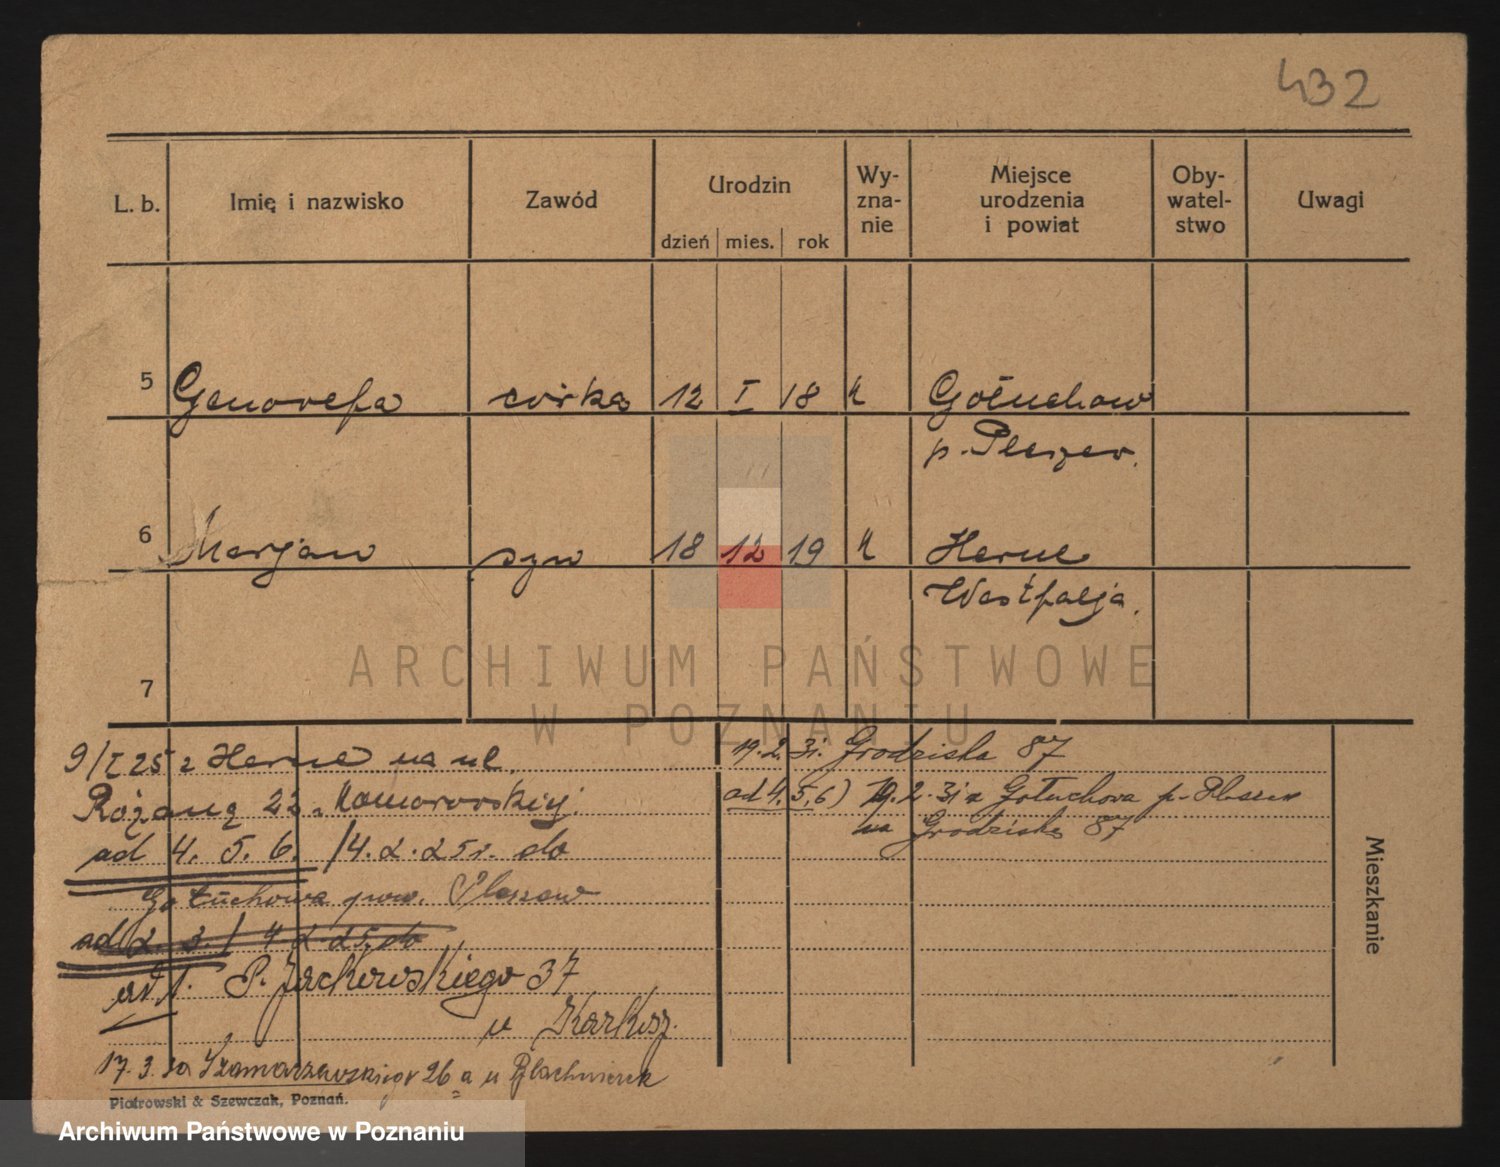 432
L. b. Imię i nazwisko Zawód Urodzin Wy-zna-nie Miejsce urodzenia i powiat Oby-watel-stwo Uwagi
dzień mies. rok
5 Genowefa córka 12 I 18 k Gołuchow
p. Pleszew.
6 Marjan syn 18 12 19 k Herne
Westfalja.
7
ARCHIWUM PAŃSTWOWE
W POZNANIU
9/I 25 z Herne na ul.
Różaną 23 Komorowskiej.
ad 4. 5. 6. /4. 2. 25 r. do
Gołuchowa pow. Pleszew
ad 2. 3. / 4 2. 25. do
ad 1. P. Jackowskiego 37
u Karkosz.
17. 3. 30 Szamarzewskiego 26 a u Blachnierek
19. 2. 31. Grodziska 87
ad 4. 5. 6) 19. 2. 31 z Gołuchowa p. Pleszew
na Grodziska 87
Mieszkanie
Piotrowski & Szewczak, Poznań.
Archiwum Państwowe w Poznaniu